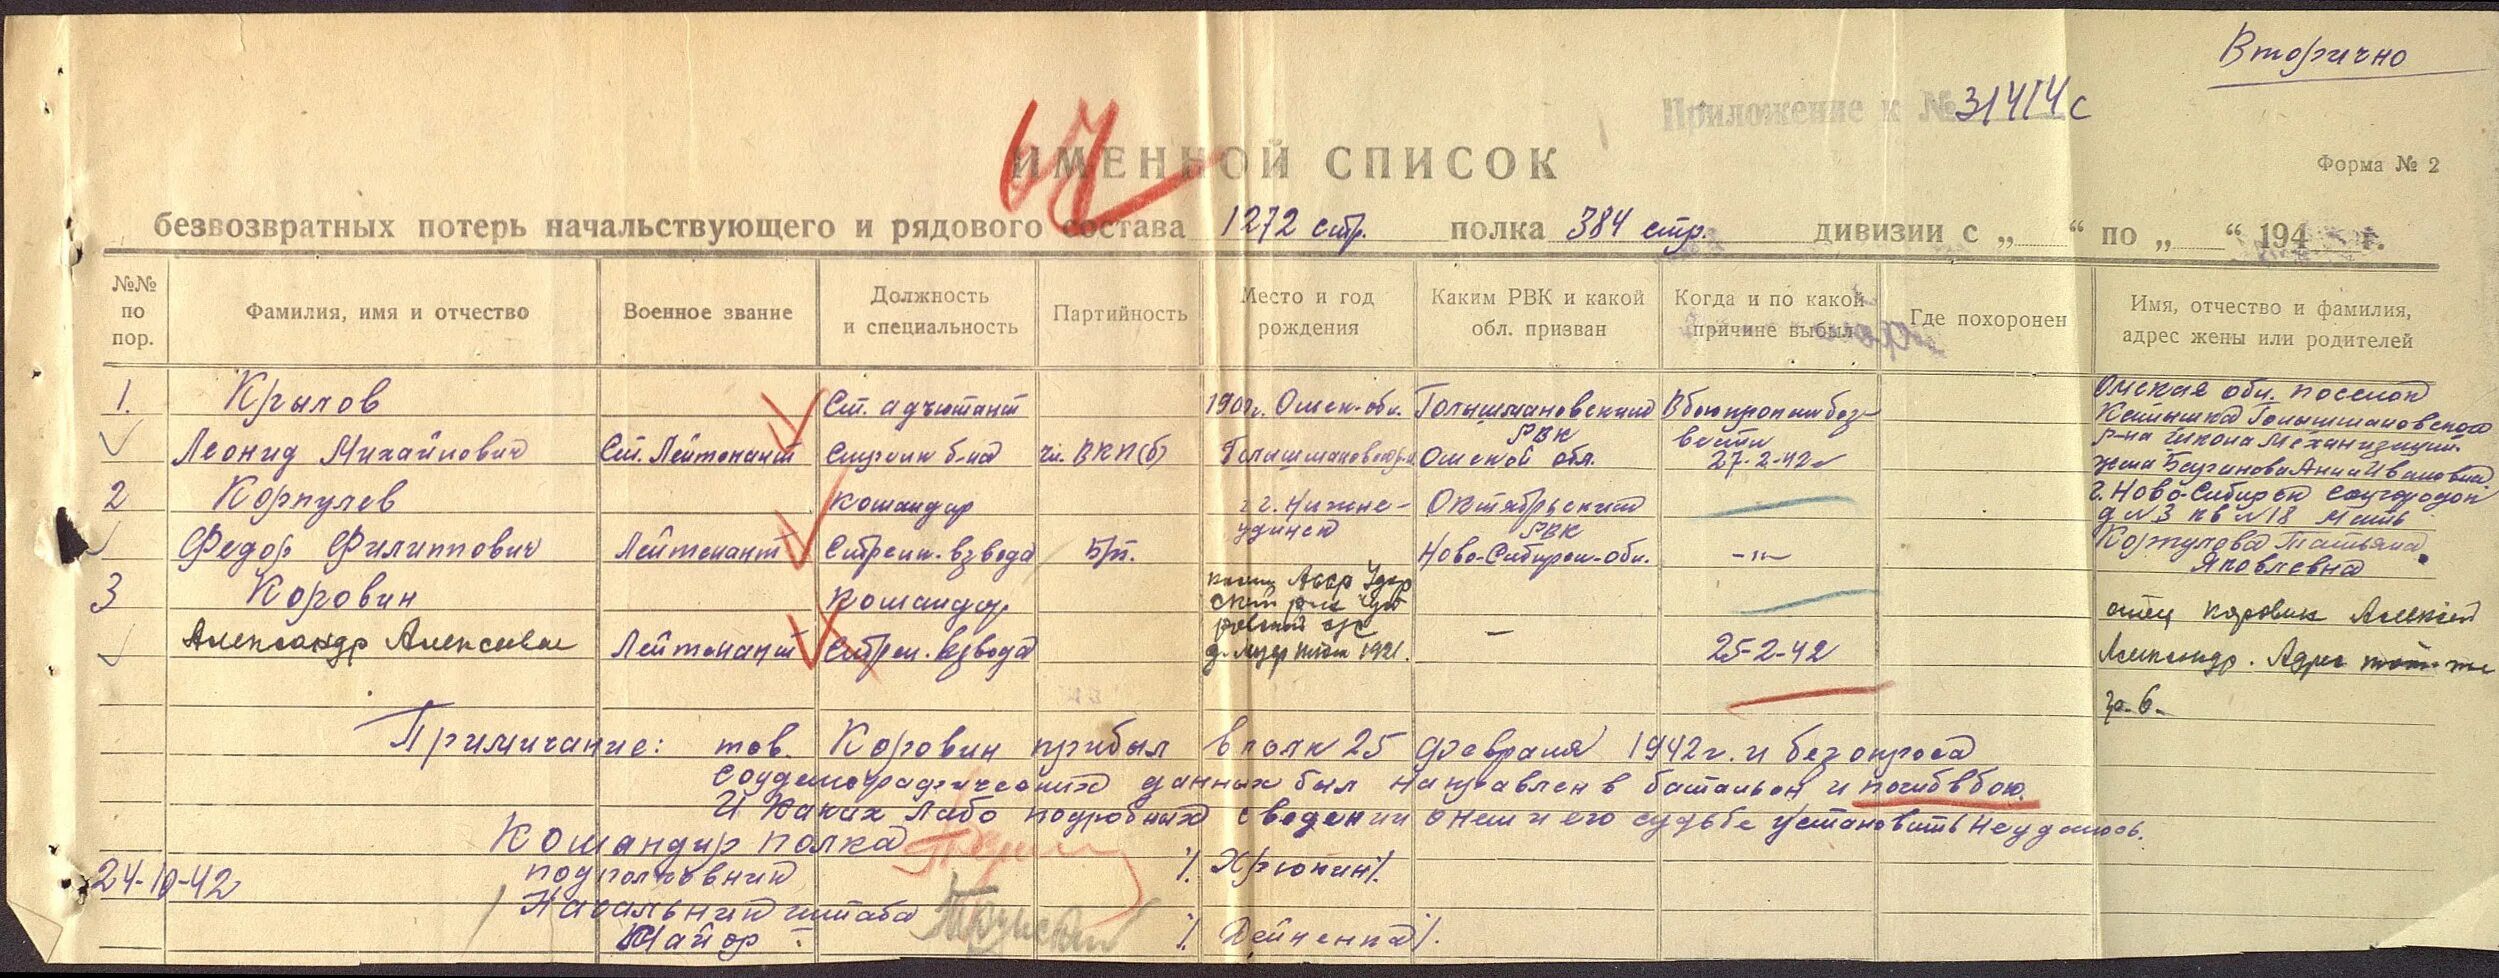 Вторично
Приложение к № 31414с
67
ИМЕННОЙ СПИСОК
Форма № 2
безвозвратных потерь начальствующего и рядового состава 1272 стр. полка 384 стр. дивизии с „ “ по „ “ 194 г.
№№ по пор.
Фамилия, имя и отчество
Военное звание
Должность и специальность
Партийность
Место и год рождения
Каким РВК и какой обл. призван
Когда и по какой причине выбыл
Где похоронен
Имя, отчество и фамилия, адрес жены или родителей
1. Крылов Леонид Михайлович
Ст. Лейтенант
Ст. адъютант Стрелк б-на
чл. ВКП(б)
Омск. обл. Голышмановск
Голышмановский РВК Омской обл.
В бою пропал без вести 27-2-42
Омская обл. поселок
Голышмановского
р-на Школа Механизации
жена Анна Ивановна
2 Корпулев Федор Филиппович
Лейтенант
Командир Стрелк. взвода
Б/п.
г. Нижне-удинск
Октябрьский РВК Ново-Сибирск. обл.
-"-
г. Ново-Сибирск Соцгородок
д № 3 кв № 18 Мать
Татьяна
Яковлевна
3 Коровин Александр Алексеевич
Лейтенант
Командир Стрел. взвода
Коми АССР Удор
ский р-н
1921.
–
25-2-42
отец Коровин Алексей
Александр. Адрес тот же
гр. 6.
Примечание: тов. Коровин прибыл в полк 25 февраля 1942 г. и без опроса
данных был направлен в батальон и погиб в бою.
И каких либо подробных сведений о нем и его судьбе установить неудалось.
Командир полка
подполковник /Хрюкин/.
24-10-42
Начальник штаба
Майор /Дейченко/.